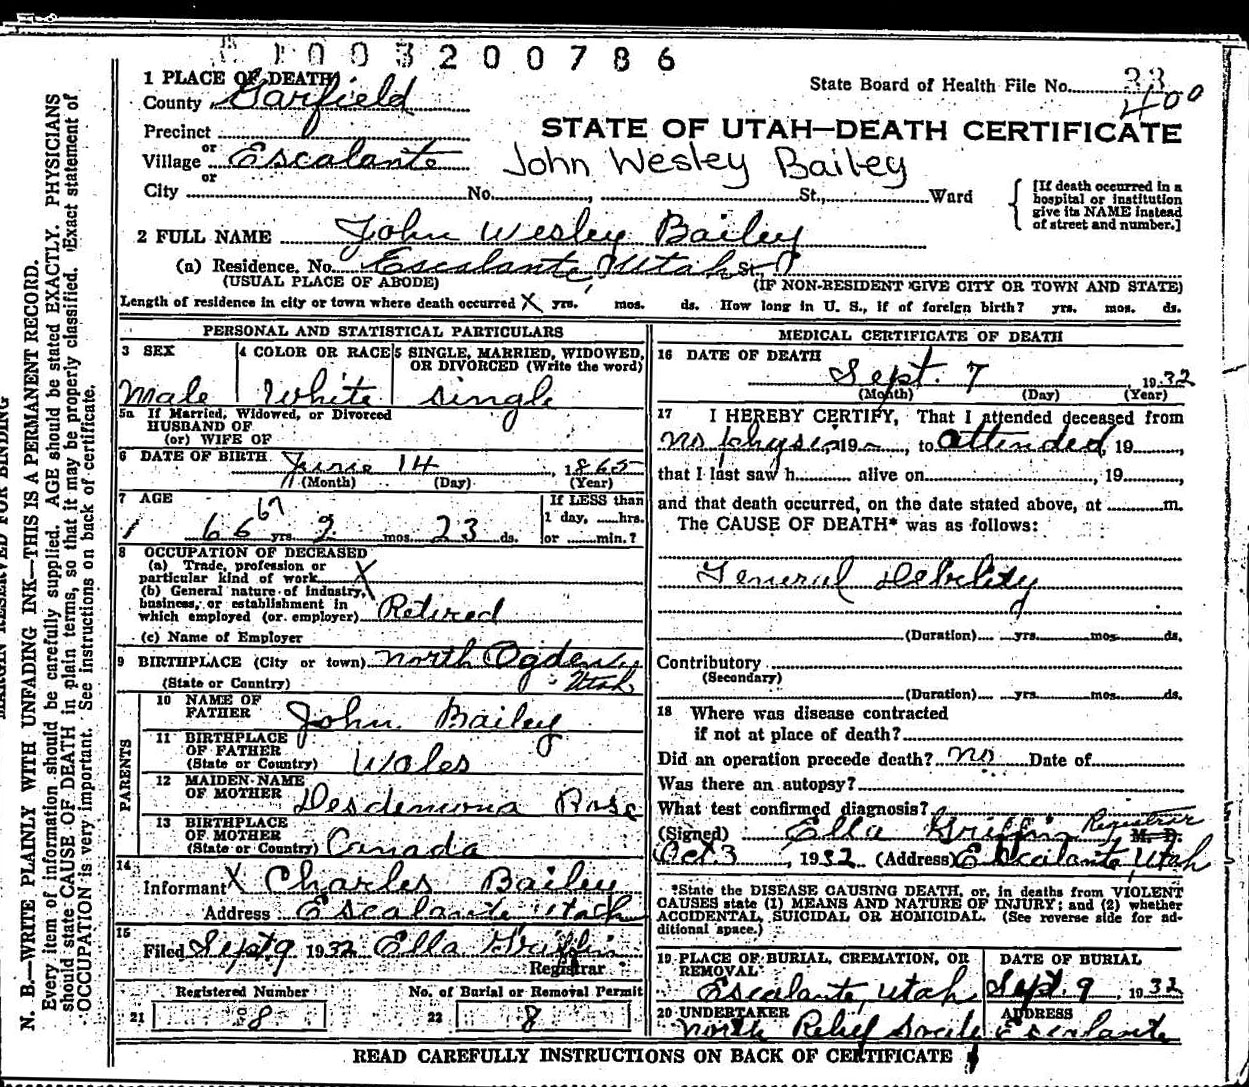 1003200786
1 PLACE OF DEATH
State Board of Health File No. 33
400
County Garfield
Precinct
or
Village Escalante
or
STATE OF UTAH—DEATH CERTIFICATE
John Wesley Bailey
City No. , St., Ward
[If death occurred in a
hospital or institution
give its NAME instead
of street and number.]
2 FULL NAME John Wesley Bailey
(a) Residence. No. Escalante, Utah St.
(USUAL PLACE OF ABODE) (IF NON-RESIDENT GIVE CITY OR TOWN AND STATE)
Length of residence in city or town where death occurred X yrs. mos. ds. How long in U. S., if of foreign birth? yrs. mos. ds.
PERSONAL AND STATISTICAL PARTICULARS
3 SEX
Male
4 COLOR OR RACE
White
5 SINGLE, MARRIED, WIDOWED,
OR DIVORCED (Write the word)
Single
5a If Married, Widowed, or Divorced
HUSBAND OF
(or) WIFE OF
6 DATE OF BIRTH June 14, 1865
(Month) (Day) (Year)
7 AGE
66 67 yrs. 2 mos. 23 ds.
If LESS than
1 day, ......hrs.
or ......min.?
8 OCCUPATION OF DECEASED
(a) Trade, profession or
particular kind of work X
(b) General nature of industry,
business, or establishment in
which employed (or employer) Retired
(c) Name of Employer
9 BIRTHPLACE (City or town) North Ogden
(State or Country) Utah
PARENTS
10 NAME OF
FATHER John Bailey
11 BIRTHPLACE
OF FATHER
(State or Country) Wales
12 MAIDEN NAME
OF MOTHER Desdemona Rose
13 BIRTHPLACE
OF MOTHER
(State or Country) Canada
14
Informant X Charles Bailey
Address Escalante Utah
15
Filed Sept 9 1932 Ella Griffin
Registrar
Registered Number No. of Burial or Removal Permit
21 8 22 8
MEDICAL CERTIFICATE OF DEATH
16 DATE OF DEATH
Sept. 7, 1932
(Month) (Day) (Year)
17 I HEREBY CERTIFY, That I attended deceased from
no physician 19 , to attended, 19 ,
that I last saw h alive on , 19 ,
and that death occurred, on the date stated above, at m.
The CAUSE OF DEATH* was as follows:
General Debility
(Duration) yrs. mos. ds.
Contributory
(Secondary)
(Duration) yrs. mos. ds.
18 Where was disease contracted
if not at place of death?
Did an operation precede death? no Date of
Was there an autopsy?
What test confirmed diagnosis?
(Signed) Ella Griffin Registrar M. D.
Oct 3, 1932 (Address) Escalante, Utah
*State the DISEASE CAUSING DEATH, or, in deaths from VIOLENT
CAUSES state (1) MEANS AND NATURE OF INJURY; and (2) whether
ACCIDENTAL, SUICIDAL OR HOMICIDAL. (See reverse side for ad-
ditional space.)
19 PLACE OF BURIAL, CREMATION, OR
REMOVAL
Escalante, Utah
DATE OF BURIAL
Sept. 9, 1932
20 UNDERTAKER
North Relief Society
ADDRESS
Escalante
READ CAREFULLY INSTRUCTIONS ON BACK OF CERTIFICATE
MARGIN RESERVED FOR BINDING
N. B.—WRITE PLAINLY WITH UNFADING INK—THIS IS A PERMANENT RECORD.
Every item of information should be carefully supplied. AGE should be stated EXACTLY. PHYSICIANS
should state CAUSE OF DEATH in plain terms, so that it may be properly classified. Exact statement of
OCCUPATION is very important. See instructions on back of certificate.